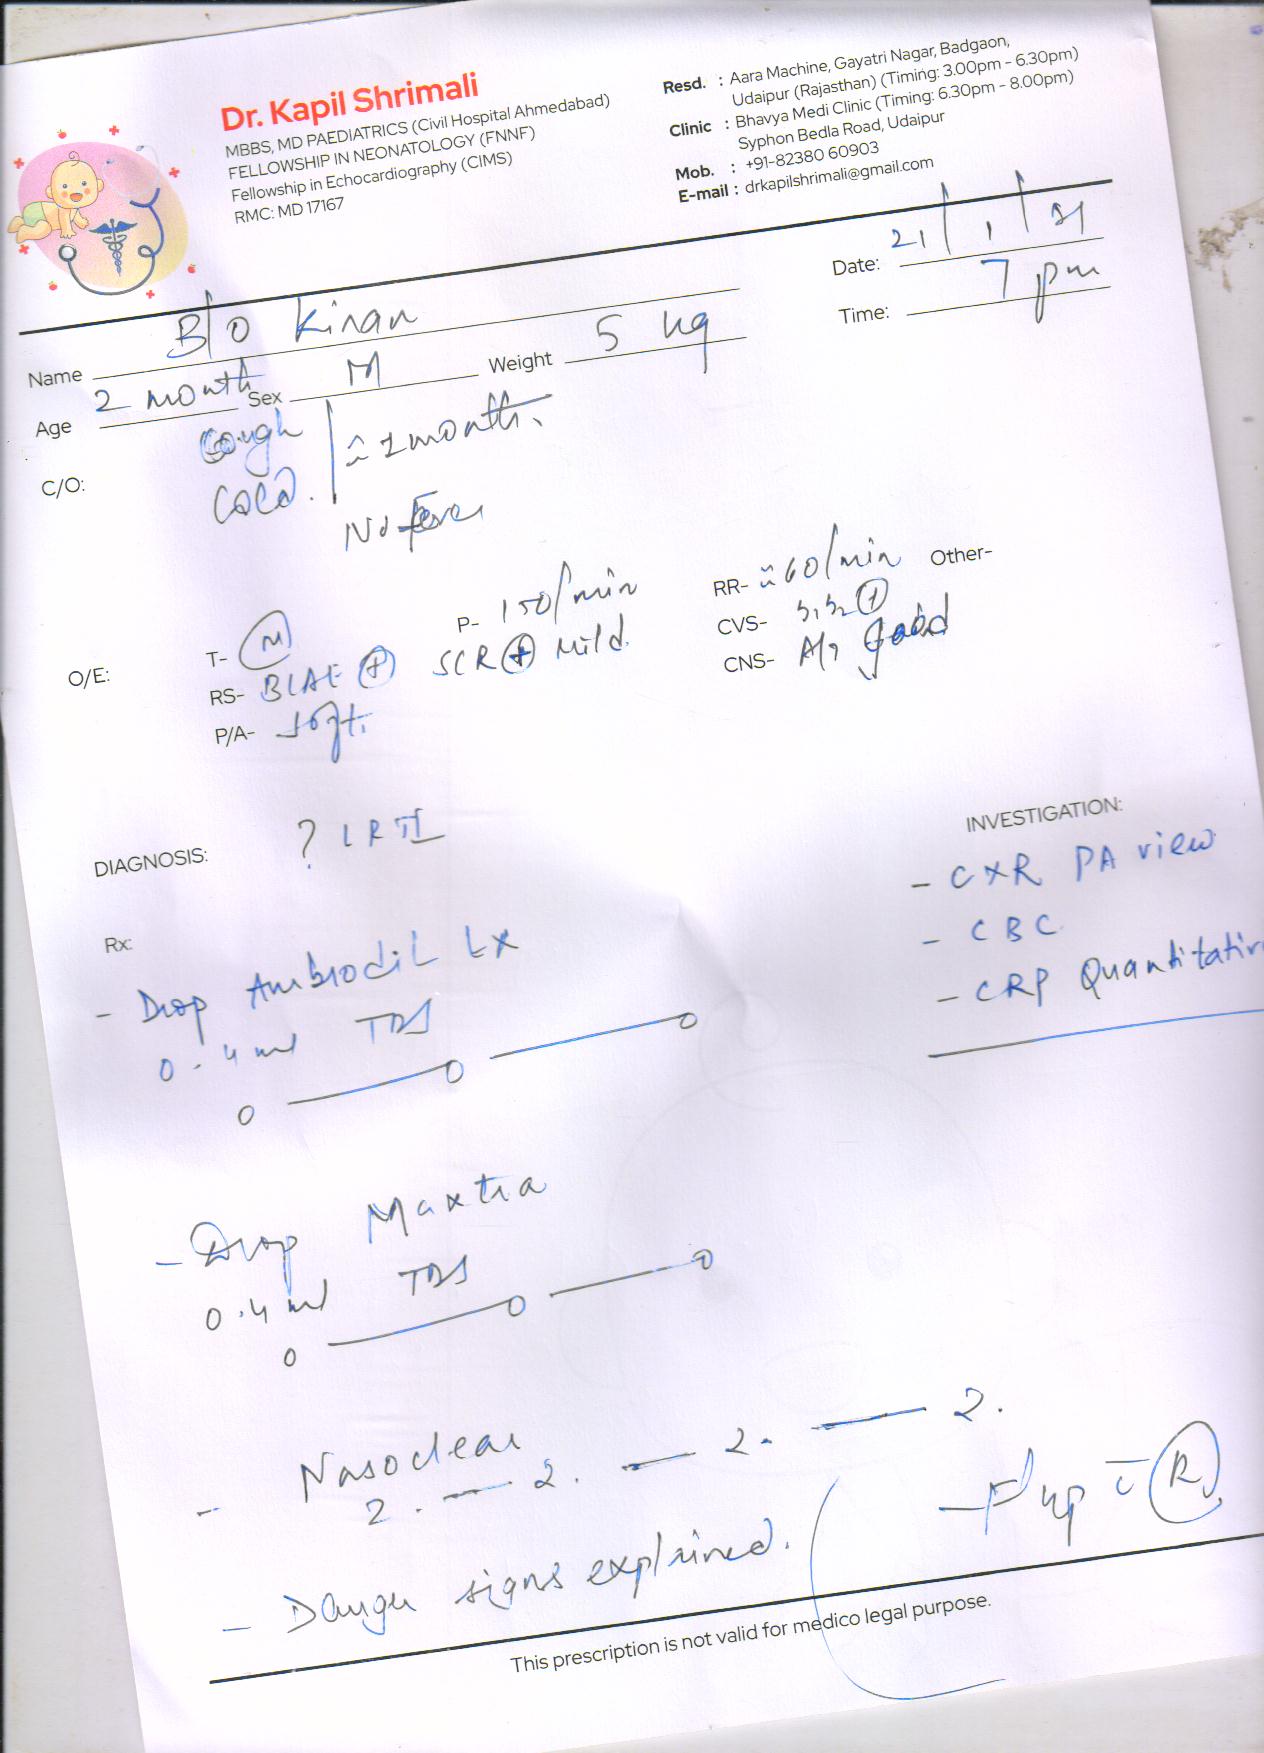 Dr. Kapil Shrimali
MBBS, MD PAEDIATRICS (Civil Hospital Ahmedabad)
FELLOWSHIP IN NEONATOLOGY (FNNF)
Fellowship in Echocardiography (CIMS)
RMC: MD 17167
Resd. : Aara Machine, Gayatri Nagar, Badgaon,
Udaipur (Rajasthan) (Timing: 3.00pm - 6.30pm)
Clinic : Bhavya Medi Clinic (Timing: 6.30pm - 8.00pm)
Syphon Bedla Road, Udaipur
Mob. : +91-82380 60903
E-mail : drkapilshrimali@gmail.com
Date: 21/1/
Time: 7 pm
Name B/o Kiran
Age 2 month Sex M Weight 5 kg
C/O: Cough
Cold. month.
No Fever
O/E: T- N P- 150/min RR- 60/min Other-
RS- BLAE + SCR + Mild. CVS- S1S2 +
P/A- soft. CNS- A/ good
DIAGNOSIS: ? LRTI
INVESTIGATION:
- CXR PA view
- CBC
- CRP Quantitative
Rx:
- Drop Ambrodil LX
0.4 ml TDS
0 — 0 — 0
- Drop Maxtra
0.4 ml TDS
0 — 0 — 0
- Nasoclear
2. — 2. — 2. — 2.
- Danger signs explained.
- F/up c̄ R
This prescription is not valid for medico legal purpose.